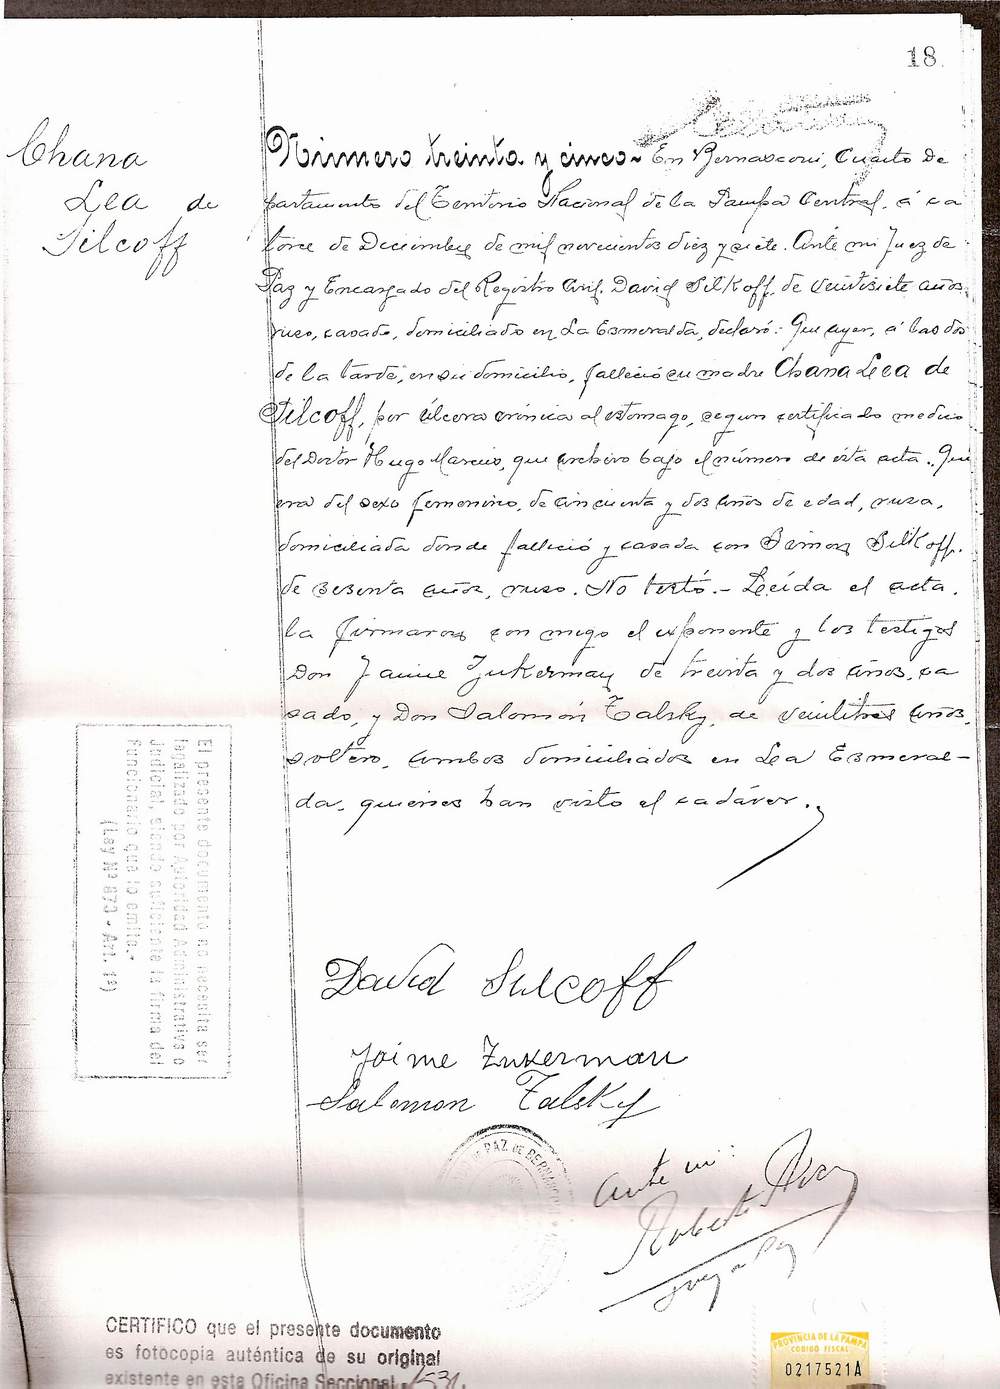 18
Chana
Lea de
Silcoff
Número treinta y cinco - En Bernasconi, Cuarto De
partamento del Territorio Nacional de la Pampa Central, á ca
torce de Diciembre de mil novecientos diez y siete. Ante mi Juez de
Paz y Encargado del Registro Civil, David Silkoff, de veintisiete años,
ruso, casado, domiciliado en La Esmeralda, declaró: Que ayer, á las dos
de la tarde, en su domicilio, falleció su madre Chana Lea de
Silcoff, por úlcera crónica al estomago, segun certificado medico
del Doctor Hugo Marcus, que archivo bajo el número de esta acta. Que
era del sexo femenino, de cincuenta y dos años de edad, rusa,
domiciliada donde falleció y casada con Simon Silkoff,
de sesenta años, ruso. No testó. - Leída el acta,
la firmaron con migo el exponente y los testigos
Don Jaime Zukerman, de treinta y dos años, ca
sado, y Don Salomón Talsky, de veintitres años,
soltero, ambos domiciliados en La Esmeral-
da, quienes han visto el cadáver.
David Silcoff
Jaime Zukerman
Salomon Talsky
PAZ DE BERNASCONI
Ante mi:
Roberto
Juez de Paz
El presente documento no necesita ser
legalizado por Autoridad Administrativa o
Judicial, siendo suficiente la firma del
funcionario que lo emite."
(Ley Nº 873 - Art. 1º)
CERTIFICO que el presente documento
es fotocopia auténtica de su original
existente en esta Oficina Seccional
PROVINCIA DE LA PAMPA
CODIGO FISCAL
0217521A